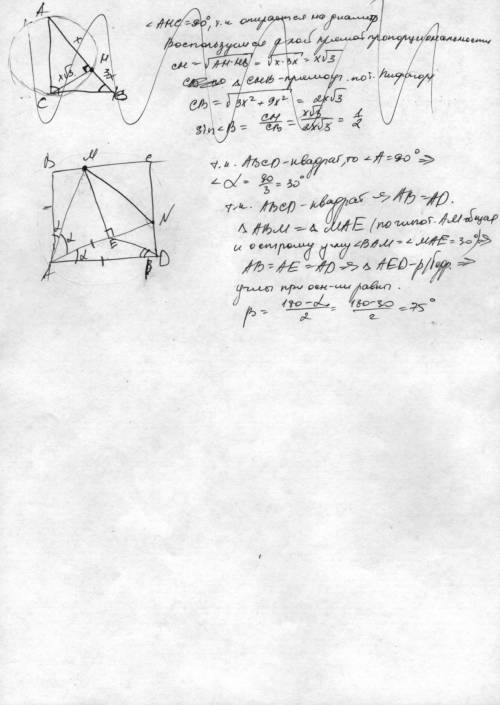 A
∠AHC=90°, т.к. опирается на диаметр
Воспользуемся пропорциональности
x
CH = √AH·HB = √x·3x = x√3
H
x√3
3x
△CHB - прямоуг. по т. Пифагора
C
B
CB = √3x²+9x² = 2x√3
sin∠B = CH/CB = x√3/2x√3 = 1/2
B M C
т.к. ABCD - квадрат, то ∠A=90° ⇒
∠α = 90/3 = 30°
т.к. ABCD - квадрат ⇒ AB = AD.
N
△ABM = △MAE (по гипот. AM-общая
α
E
и острому углу ∠BAM = ∠MAE = 30°) ⇒
α
AB = AE = AD ⇒ △AED - р/бедр. ⇒
A
β
D
углы при осн-ии равны.
β = 180-α/2 = 180-30/2 = 75°